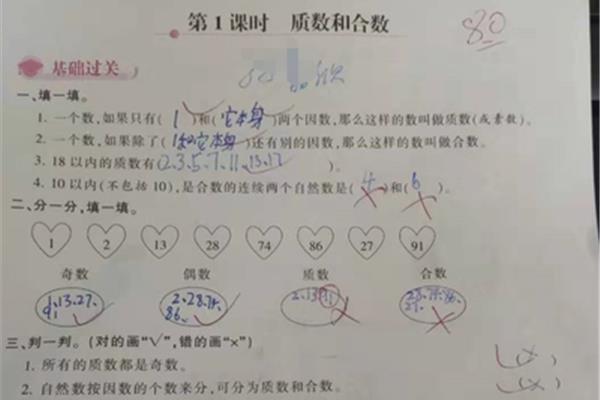 第1课时 质数和合数
80
基础过关
一、填一填。
1. 一个数,如果只有( 1 )和( 它本身 )两个因数,那么这样的数叫做质数(或素数)。
2. 一个数,如果除了( 1和它本身 )还有别的因数,那么这样的数叫做合数。
3. 18以内的质数有(2.3.5.7.11.13.17 )。
4. 10以内(不包括10),是合数的连续两个自然数是( 4 )和( 6 )。
二、分一分,填一填。
1 2 13 28 74 86 27 91
奇数 偶数 质数 合数
13.27. 2.28.74. 2.13 28.74.86.
91 86. 27.
三、判一判。(对的画“√”,错的画“×”)
1. 所有的质数都是奇数。 (×)
2. 自然数按因数的个数来分,可分为质数和合数。 (×)